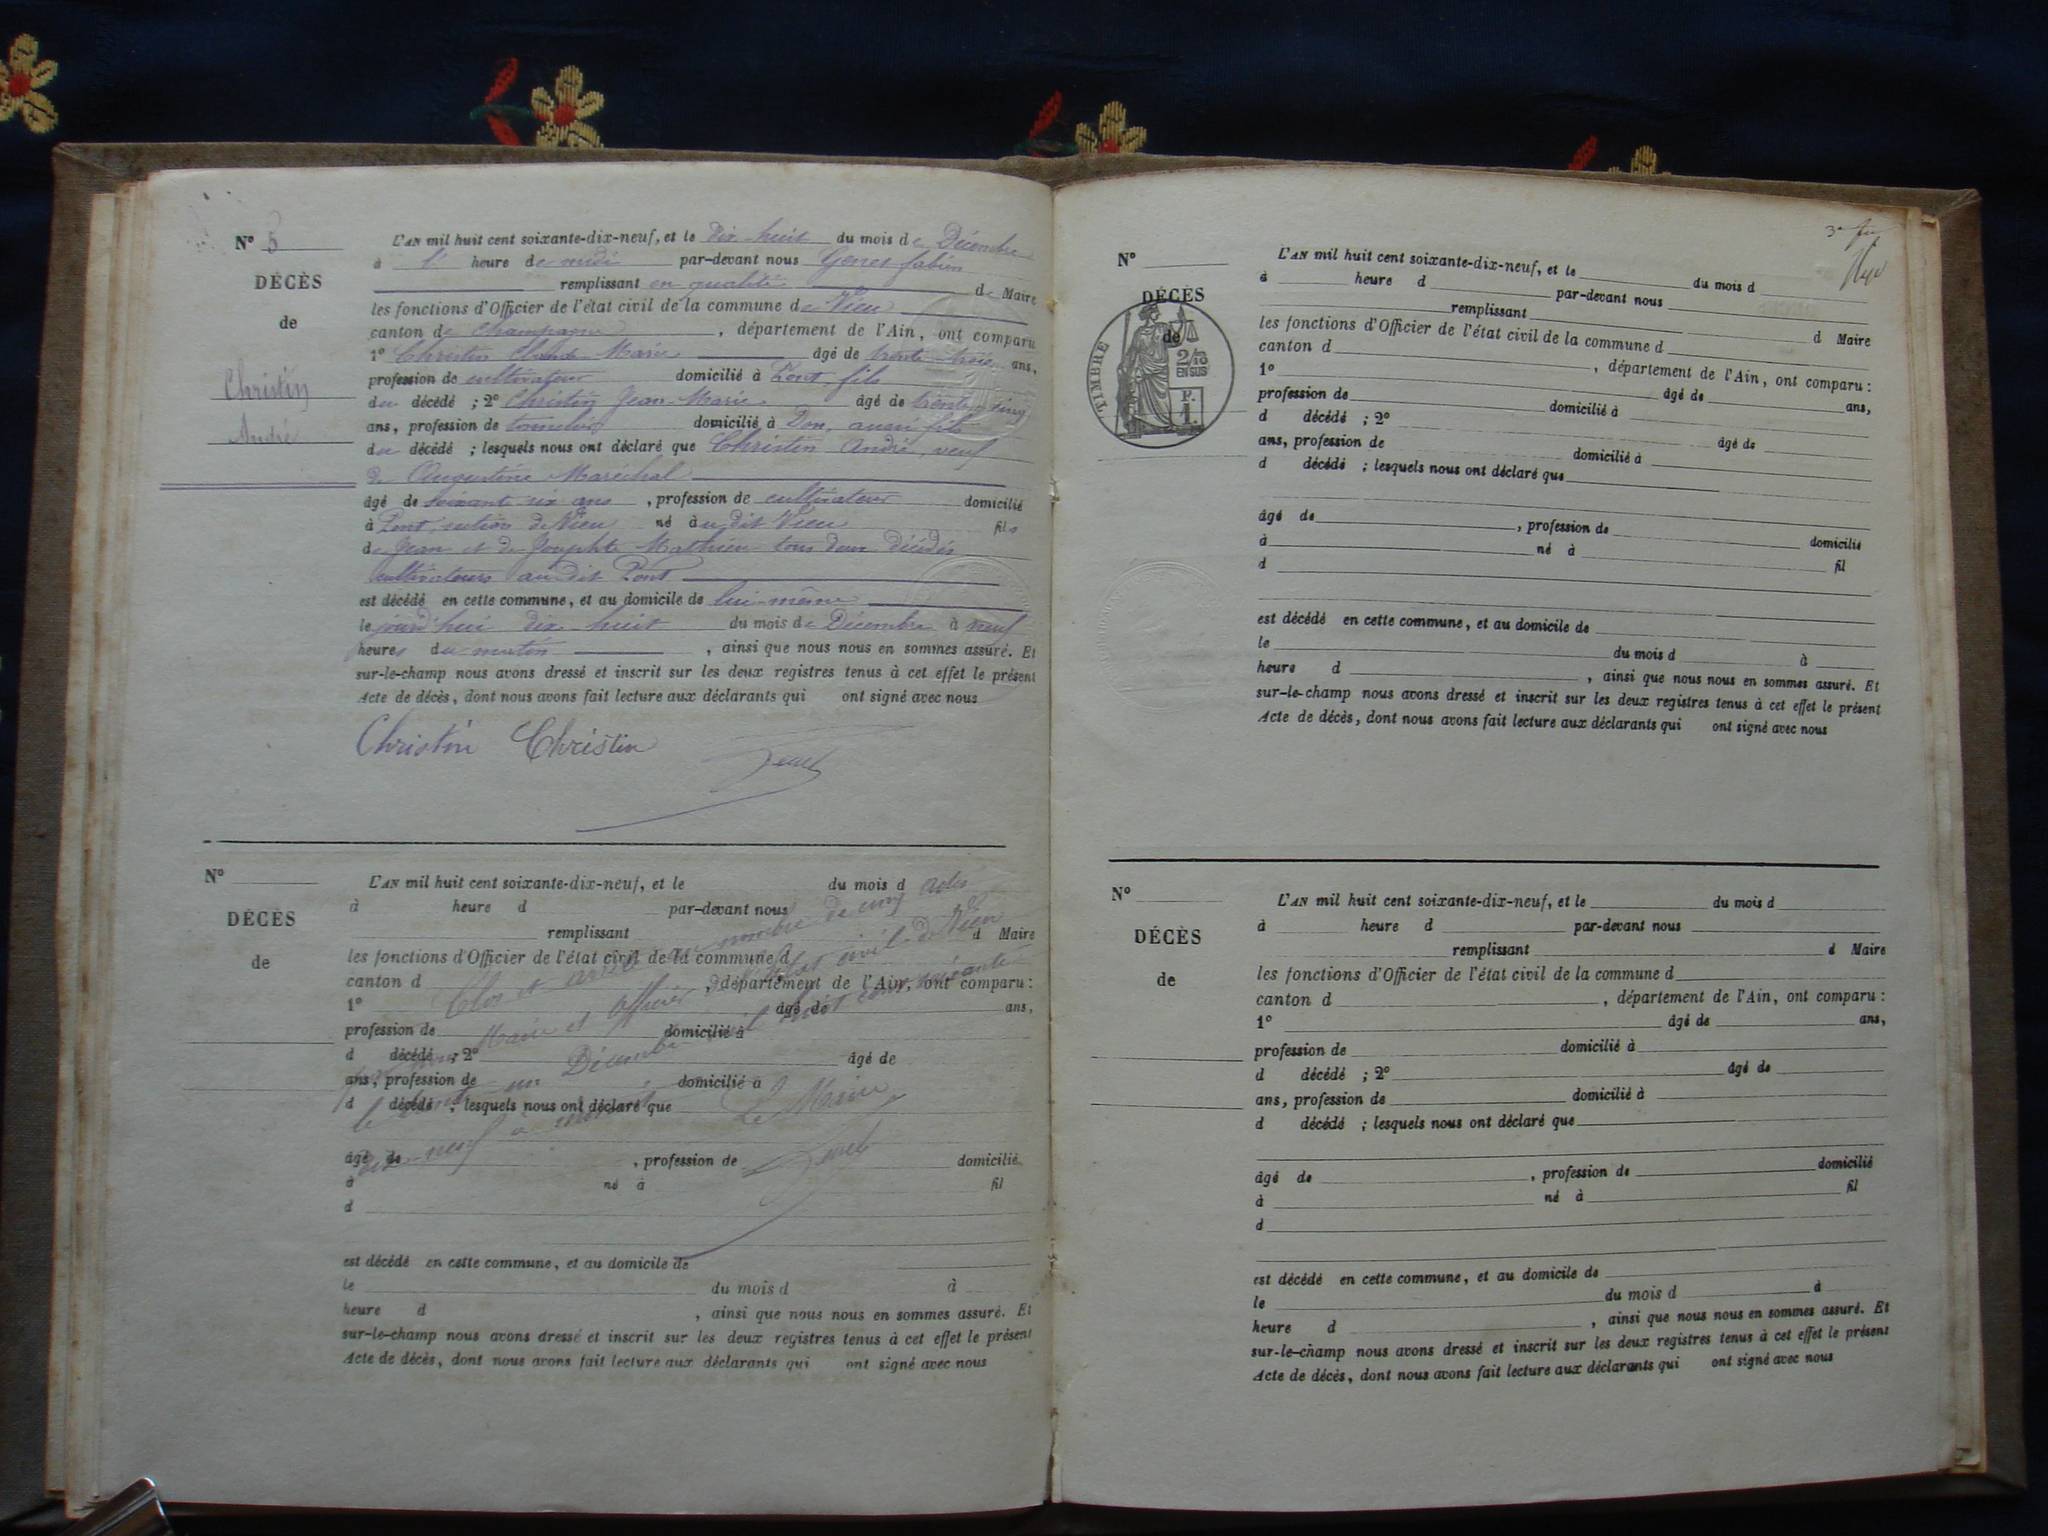 N° 5
DÉCÈS
de
Christin
André
L'AN mil huit cent soixante-dix-neuf, et le dix huit du mois de Décembre
à heure de midi par-devant nous Genet fabien
remplissant en qualité de Maire
les fonctions d'Officier de l'état civil de la commune de Vieu
canton de champagne, département de l'Ain, ont comparu
1° Christin Claude Marie âgé de trente trois ans,
profession de cultivateur domicilié à Pont, fils
du décédé ; 2° Christin Jean-Marie âgé de trente cinq
ans, profession de domicilié à Don, aussi fils
du décédé ; lesquels nous ont déclaré que Christin André, veuf
de Augustine Maréchal
âgé de soixante six ans, profession de cultivateur domicilié
à Pont, section de Vieu né à udit Vieu fils
de Jean et de Josephte Mathieu tous deux décédés
cultivateurs au dit Pont
est décédé en cette commune, et au domicile de lui-même
le jourd'hui dix huit du mois de Décembre à neuf
heures du matin, ainsi que nous nous en sommes assuré. Et
sur-le-champ nous avons dressé et inscrit sur les deux registres tenus à cet effet le présent
Acte de décès, dont nous avons fait lecture aux déclarants qui ont signé avec nous
Christin Christin Genet
N°
DÉCÈS
de
L'AN mil huit cent soixante-dix-neuf, et le du mois d
à heure d par-devant nous
remplissant d Maire
les fonctions d'Officier de l'état civil de la commune d
canton d , département de l'Ain, ont comparu :
1° âgé de ans,
profession de domicilié à
d décédé ; 2° âgé de
ans, profession de domicilié à
d décédé ; lesquels nous ont déclaré que
âgé de , profession de domicilié
à né à fil
d
est décédé en cette commune, et au domicile de
le du mois d à
heure d , ainsi que nous nous en sommes assuré. Et
sur-le-champ nous avons dressé et inscrit sur les deux registres tenus à cet effet le présent
Acte de décès, dont nous avons fait lecture aux déclarants qui ont signé avec nous
Clos et arrêté au nombre de cinq actes
Maire et officier de l'état civil de Vieu
le trente un Décembre mil huit cent soixante
dix-neuf à
Le Maire
Genet
3e
N°
DÉCÈS
de
TIMBRE
2/10
EN SUS
F.
1.
L'AN mil huit cent soixante-dix-neuf, et le du mois d
à heure d par-devant nous
remplissant d Maire
les fonctions d'Officier de l'état civil de la commune d
canton d , département de l'Ain, ont comparu :
1° âgé de ans,
profession de domicilié à
d décédé ; 2° âgé de
ans, profession de domicilié à
d décédé ; lesquels nous ont déclaré que
âgé de , profession de domicilié
à né à fil
d
est décédé en cette commune, et au domicile de
le du mois d à
heure d , ainsi que nous nous en sommes assuré. Et
sur-le-champ nous avons dressé et inscrit sur les deux registres tenus à cet effet le présent
Acte de décès, dont nous avons fait lecture aux déclarants qui ont signé avec nous
N°
DÉCÈS
de
L'AN mil huit cent soixante-dix-neuf, et le du mois d
à heure d par-devant nous
remplissant d Maire
les fonctions d'Officier de l'état civil de la commune d
canton d , département de l'Ain, ont comparu :
1° âgé de ans,
profession de domicilié à
d décédé ; 2° âgé de
ans, profession de domicilié à
d décédé ; lesquels nous ont déclaré que
âgé de , profession de domicilié
à né à fil
d
est décédé en cette commune, et au domicile de
le du mois d d
heure d , ainsi que nous nous en sommes assuré. Et
sur-le-champ nous avons dressé et inscrit sur les deux registres tenus à cet effet le présent
Acte de décès, dont nous avons fait lecture aux déclarants qui ont signé avec nous